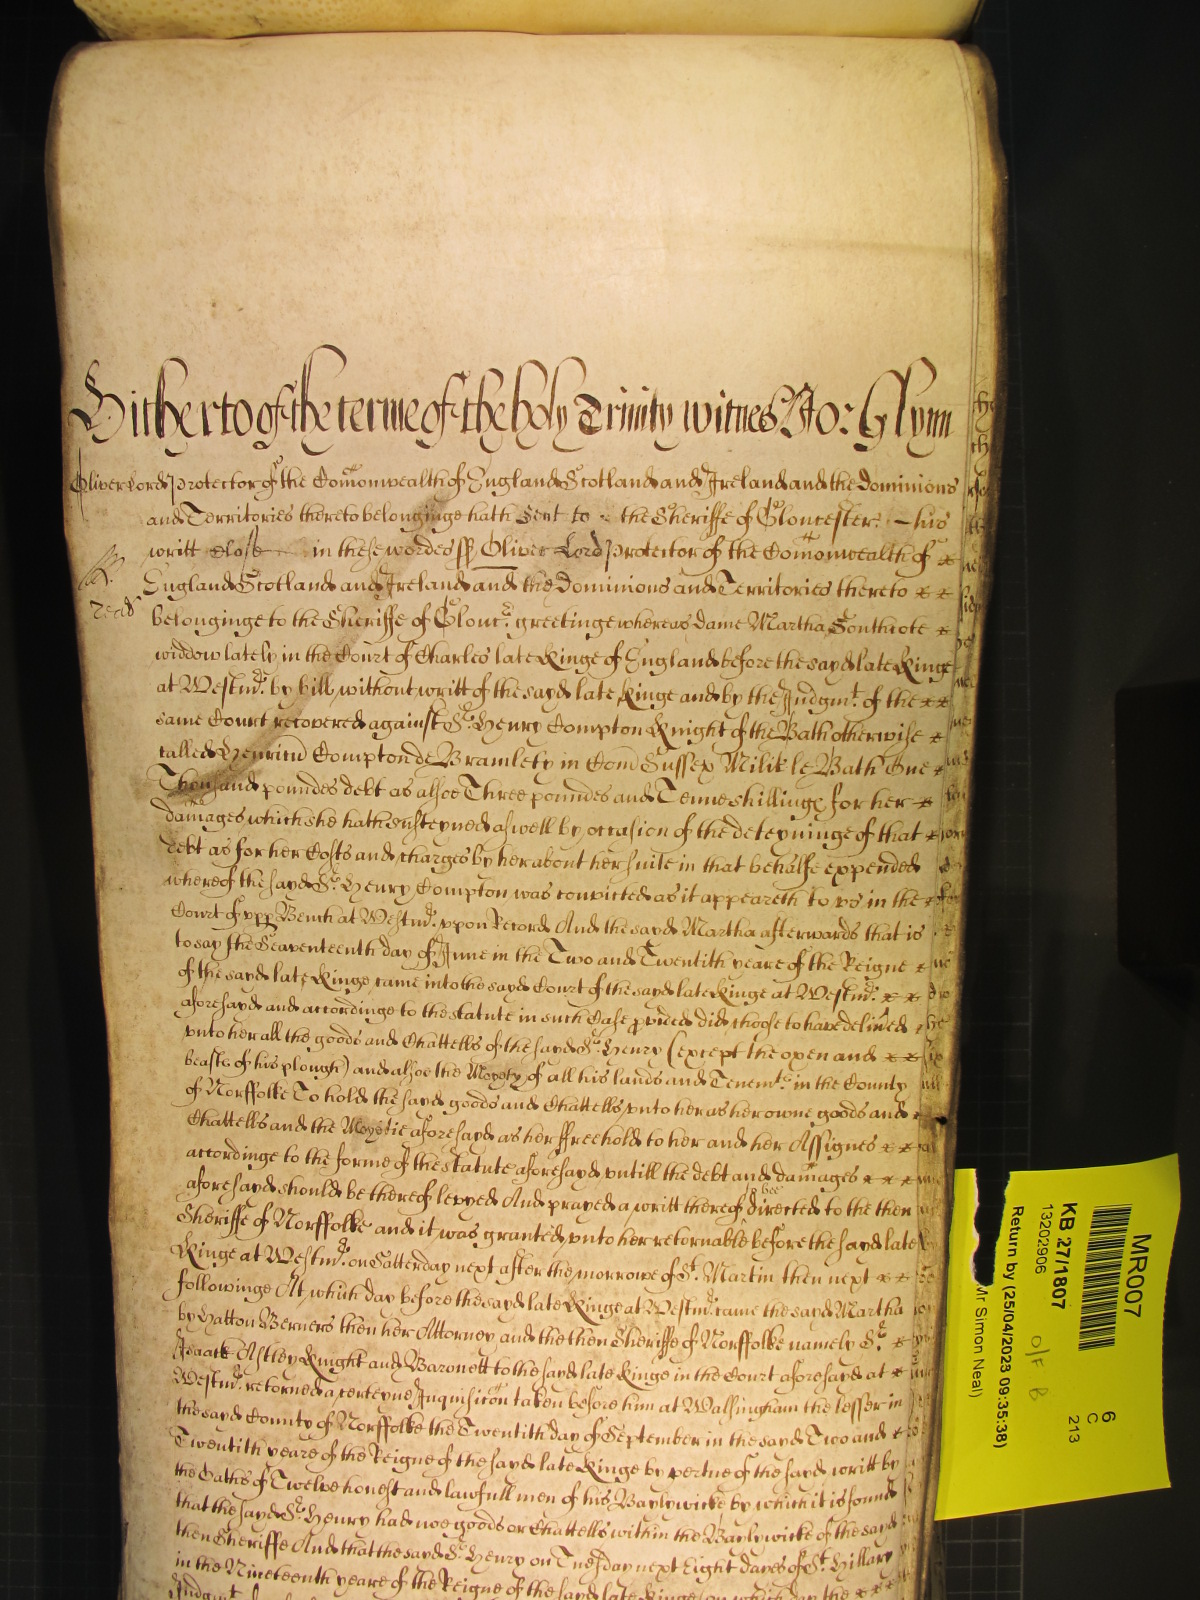 Hitherto of the terme of the holy Trinity witnes Jo: Glynn
Oliver Lord Protector of the Comonwealth of England Scotland and Ireland and the Dominions
and Territories thereto belonginge hath sent to the Sheriffe of Gloucester his
writt close in these wordes ss Oliver Lord Protector of the Comonwealth of
England Scotland and Ireland and the Dominions and Territories thereto
belonginge to the Sheriffe of Glouc. greetinge whereas dame Martha Southcote
widdow lately in the Court of Charles late Kinge of England before the sayd late Kinge
at Westmr. by bill without writt of the sayd late Kinge and by the Judgmt. of the
same Court recovered against Sr. Henry Compton Knight of the Bath otherwise
called Henricu Compton de Bramblety in Com Sussex Milit le Bath One
Thousand poundes debt as alsoe Three poundes and Tenne shillinges for her
damages which she hath susteyned aswell by occasion of the deteyninge of that
debt as for her Costs and charges by her about her suite in that behalfe expended
whereof the sayd Sr. Henry Compton was convicted as it appeareth to us in the
Court of upp Bench at Westmr. uppon Record And the sayd Martha afterwards that is
to say the Seaventeenth day of June in the Two and Twentith yeare of the Reigne
of the sayd late Kinge came into the sayd Court of the sayd late Kinge at Westmr.
aforesayd and accordinge to the statute in such Case pvided did choose to have delived
unto her all the goods and Chattells of the sayd Sr. Henry (except the oxen and
beasts of his plough) and alsoe the Moyety of all his lands and Tenemts. in the County
of Norffolke To hold the sayd goods and Chattells unto her as her owne goods and
Chattells and the Moyetie aforesayd as her ffreehold to her and her Assignes
accordinge to the forme of the statute aforesayd untill the debt and damages
aforesayd should be thereof levyed And prayed a writt thereof to bee directed to the then
Sheriffe of Norffolke and it was granted unto her retornable before the sayd late
Kinge at Westmr. on Satterday next after the morrowe of St. Martin then next
followinge At which day before the sayd late Kinge at Westmr. came the sayd Martha
by Hatton Berners then her Attorney and the then Sheriffe of Norffolke namely Sr.
Isaack Astley Knight and Baronett to the sayd late Kinge in the Court aforesayd at
Westmr. retorned a certeyne Inquisicon taken before him at Walsingham the lesser in
the sayd County of Norffolke the Twentith day of September in the sayd Two and
Twentith yeare of the Reigne of the sayd late Kinge by vertue of the sayd writt by
the Oathes of Twelve honest and lawfull men of his Baylywicke by which it is found
that the sayd Sr. Henry had noe goods or Chattells within the Baylywicke of the sayd
then Sheriffe And that the sayd Sr. Henry on Tuesday next Eight dayes of St. Hillary
in the Nineteenth yeare of the Reigne of the sayd late Kinge on which day the
MR007
KB 27/1807
13202906
Return by (25/04/2023 09:35:38)
Mr Simon Neal)
O/F B
6
C
213